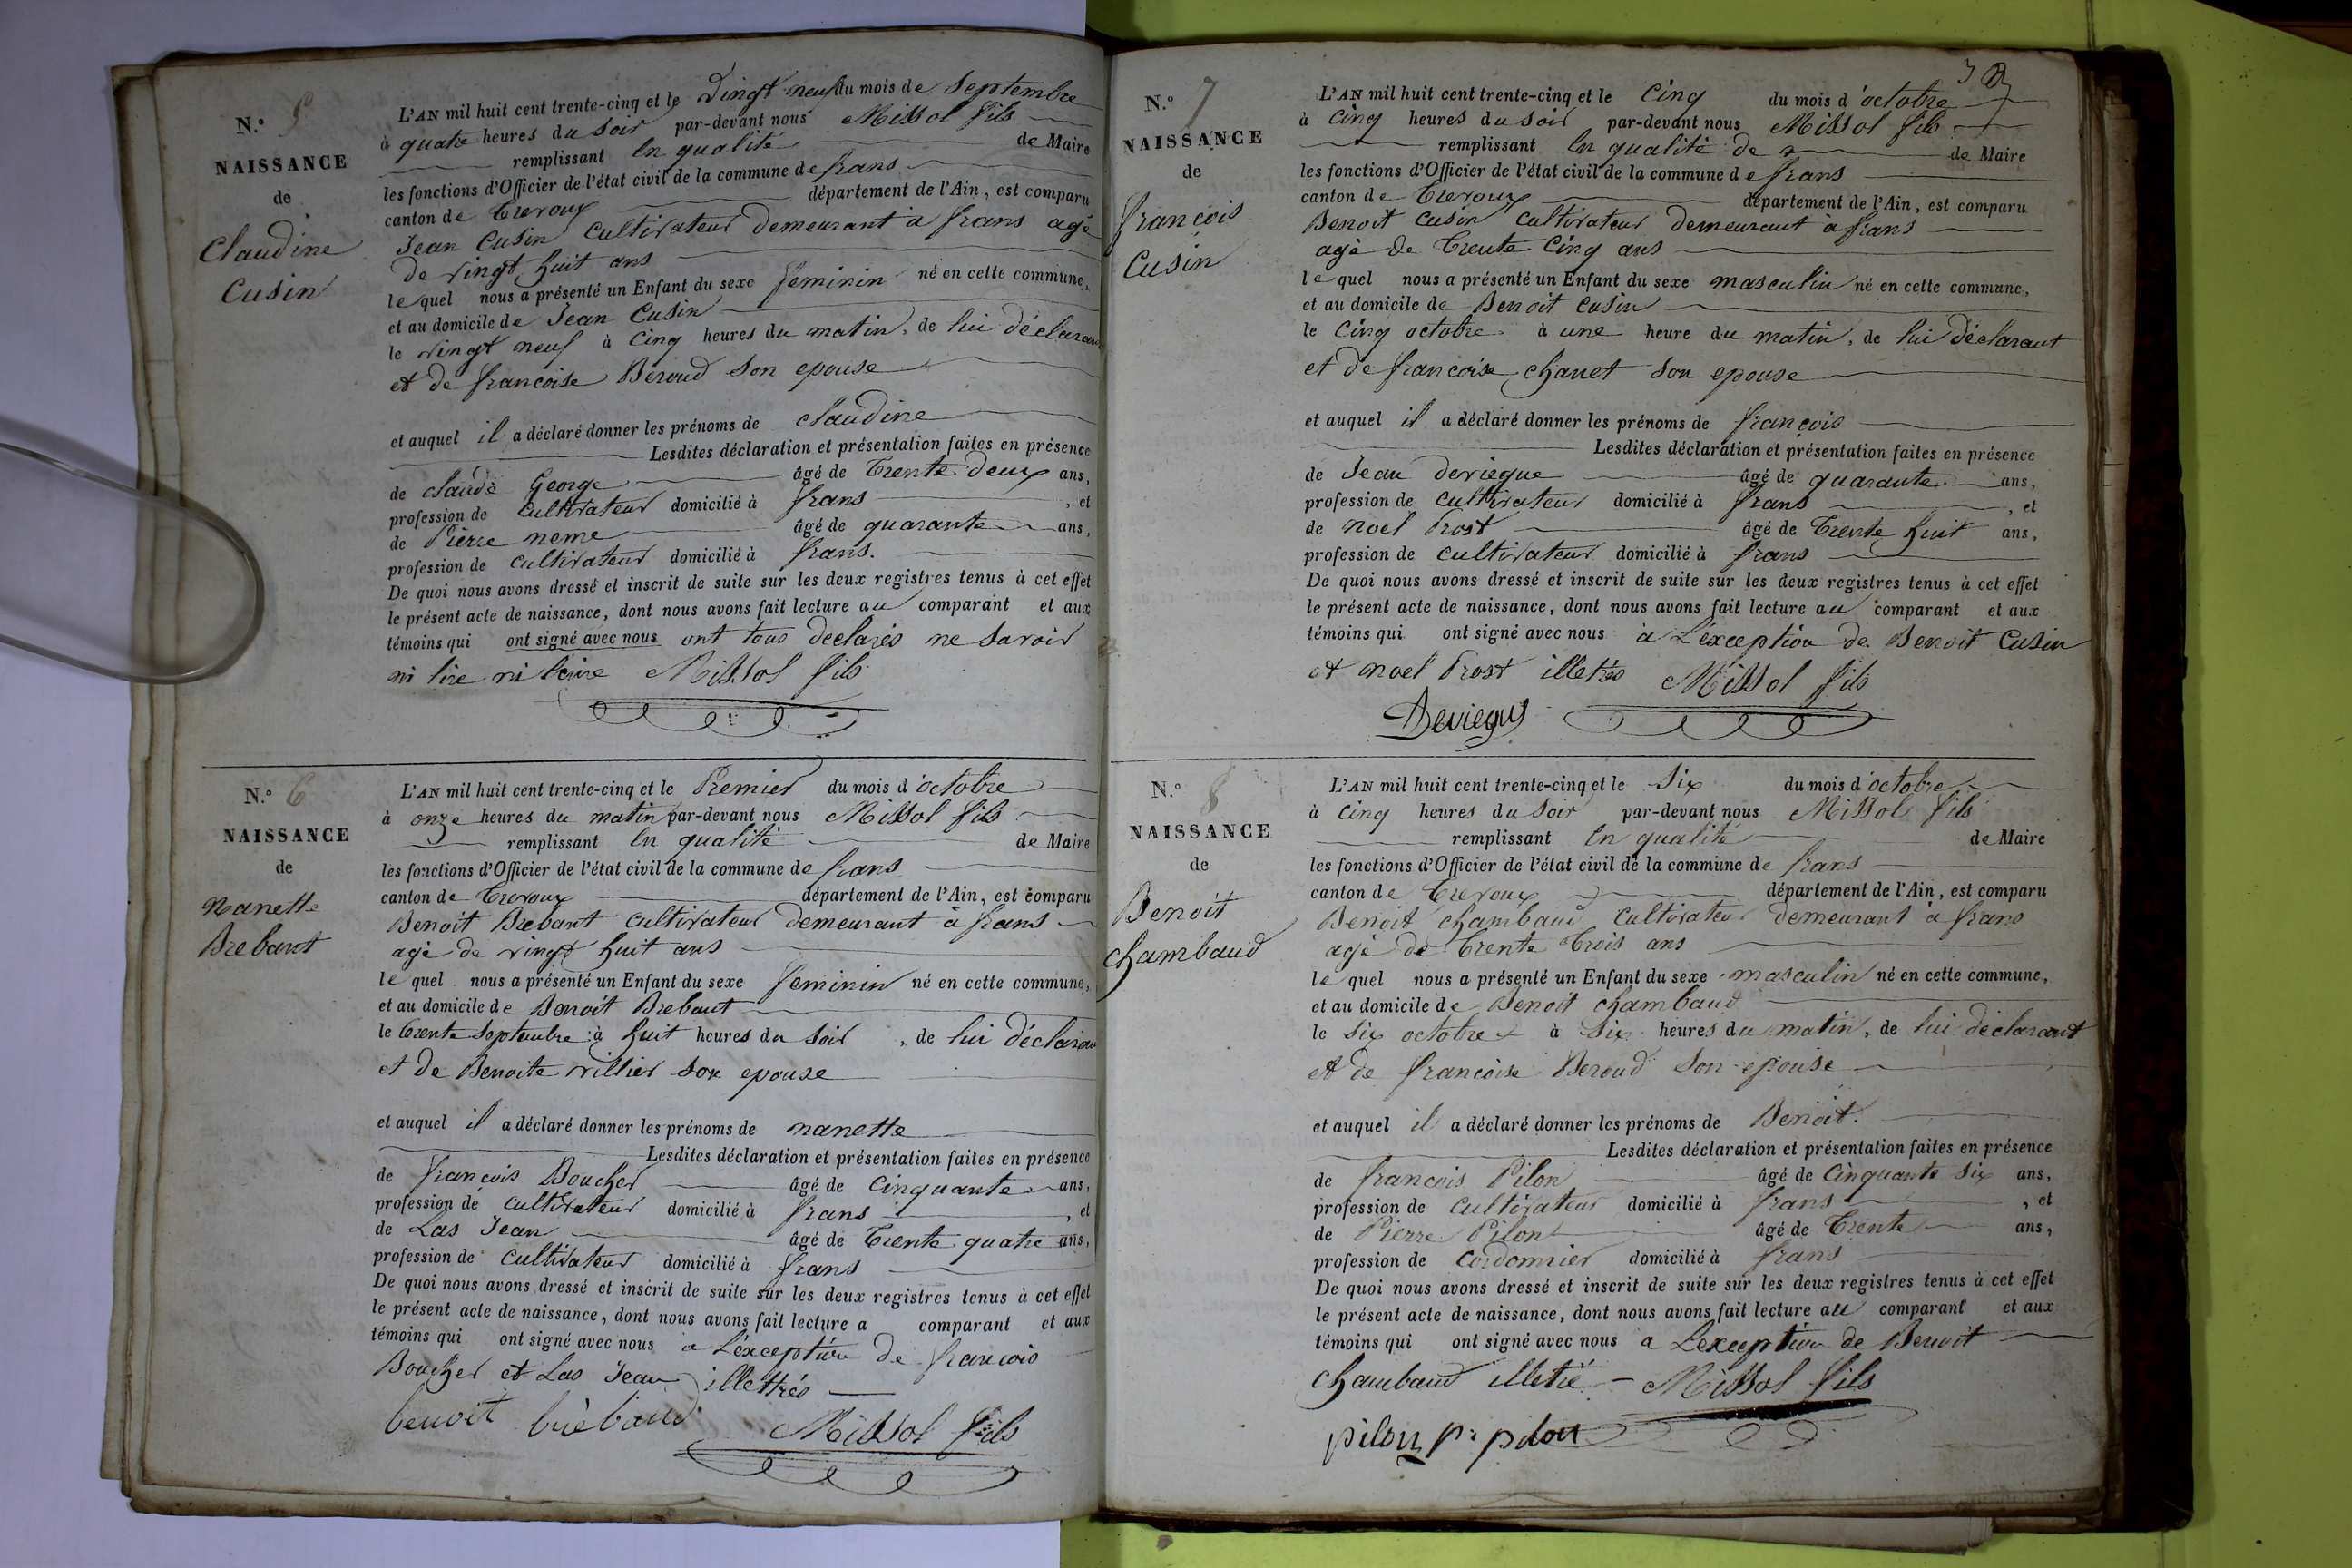 N.° 5
NAISSANCE
de
Claudine
Cusin
L'AN mil huit cent trente-cinq et le Vingt neuf du mois de Septembre
à quatre heures du soir par-devant nous Missol fils
remplissant en qualité de Maire
les fonctions d'Officier de l'état civil de la commune de frans
canton de Trevoux département de l'Ain, est comparu
Jean Cusin Cultivateur demeurant à frans agé
de vingt huit ans
le quel nous a présenté un Enfant du sexe feminin né en cette commune,
et au domicile de Jean Cusin
le vingt neuf à Cinq heures du matin, de lui déclarant
et de francoise Beroud son epouse
et auquel il a déclaré donner les prénoms de claudine
Lesdites déclaration et présentation faites en présence
de claude George âgé de Trente deux ans,
profession de Cultivateur domicilié à frans, et
de Pierre neme âgé de quarante ans,
profession de cultivateur domicilié à frans.
De quoi nous avons dressé et inscrit de suite sur les deux registres tenus à cet effet
le présent acte de naissance, dont nous avons fait lecture au comparant et aux
témoins qui ont signé avec nous ont tous declarés ne savoir
ni lire ni écrire Missol fils
N.° 6
NAISSANCE
de
Nanette
Brebant
L'AN mil huit cent trente-cinq et le Premier du mois d'octobre
à onze heures du matin par-devant nous Missol fils
remplissant en qualité de Maire
les fonctions d'Officier de l'état civil de la commune de frans
canton de Trevoux département de l'Ain, est comparu
Benoit Brebant cultivateur demeurant à frans
agé de vingt huit ans
le quel nous a présenté un Enfant du sexe feminin né en cette commune,
et au domicile de Benoit Brebant
le trente Septembre à huit heures du soir, de lui déclarant
et de Benoite villier son epouse
et auquel il a déclaré donner les prénoms de nanette
Lesdites déclaration et présentation faites en présence
de francois Boucher âgé de cinquante ans,
profession de cultivateur domicilié à frans, et
de Las Jean âgé de Trente quatre ans,
profession de Cultivateur domicilié à frans
De quoi nous avons dressé et inscrit de suite sur les deux registres tenus à cet effet
le présent acte de naissance, dont nous avons fait lecture a comparant et aux
témoins qui ont signé avec nous a L'exception de francois
Boucher et Las Jean illettrés
benoit brebaud Missol fils
N.° 7
NAISSANCE
de
francois
Cusin
L'AN mil huit cent trente-cinq et le Cinq du mois d'octobre
à Cinq heures du soir par-devant nous Missol fils
remplissant en qualité de de Maire
les fonctions d'Officier de l'état civil de la commune de frans
canton de Trevoux département de l'Ain, est comparu
Benoit Cusin cultivateur demeurant à frans
agé de Trente Cinq ans
le quel nous a présenté un Enfant du sexe masculin né en cette commune,
et au domicile de Benoit Cusin
le Cinq octobre à une heure du matin, de lui déclarant
et de francoise chanet son epouse
et auquel il a déclaré donner les prénoms de francois
Lesdites déclaration et présentation faites en présence
de Jean deviegue âgé de quarante ans,
profession de Cultivateur domicilié à frans, et
de noel Prost âgé de Trente huit ans,
profession de cultivateur domicilié à frans
De quoi nous avons dressé et inscrit de suite sur les deux registres tenus à cet effet
le présent acte de naissance, dont nous avons fait lecture au comparant et aux
témoins qui ont signé avec nous à L'exception de Benoit Cusin
et noel Prost illetrés Missol fils
N.° 8
NAISSANCE
de
Benoit
chambaud
L'AN mil huit cent trente-cinq et le six du mois d'octobre
à cinq heures du soir par-devant nous Missol fils
remplissant en qualité de Maire
les fonctions d'Officier de l'état civil de la commune de frans
canton de Trevoux département de l'Ain, est comparu
Benoit chambaud cultivateur demeurant à frans
agé de Trente Trois ans
le quel nous a présenté un Enfant du sexe masculin né en cette commune,
et au domicile de Benoit chambaud
le six octobre à six heures du matin, de lui déclarant
et de francoise Beroud son epouse
et auquel il a déclaré donner les prénoms de Benoit.
Lesdites déclaration et présentation faites en présence
de francois Pilon âgé de cinquante six ans,
profession de cultivateur domicilié à frans, et
de Pierre Pilon âgé de Trente ans,
profession de cordonnier domicilié à frans
De quoi nous avons dressé et inscrit de suite sur les deux registres tenus à cet effet
le présent acte de naissance, dont nous avons fait lecture au comparant et aux
témoins qui ont signé avec nous a L'exception de Benoit
Chambaud illetré Missol fils
pilon pr pilon